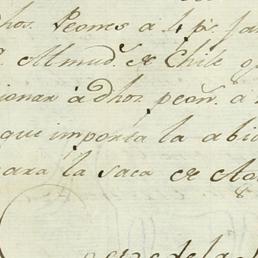 dhos. Peones a 4 ps.
Almud. de Chile
ionar à dhos peon. a
que importa la abi
para la saca de